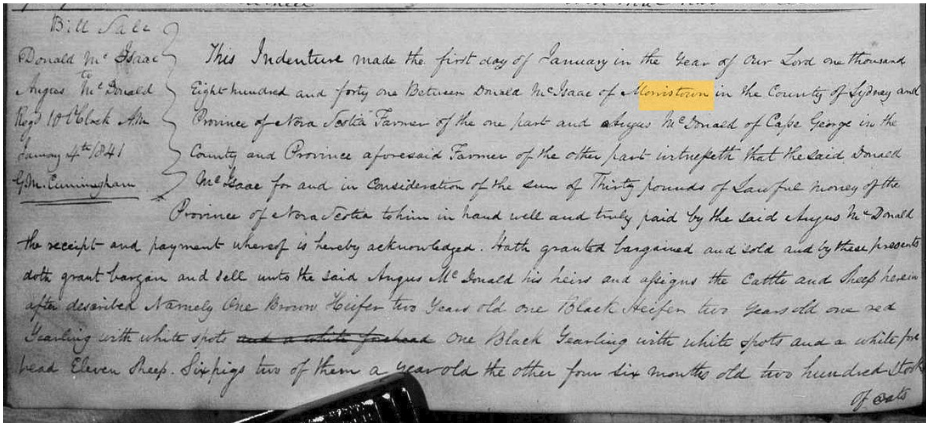 Bill Sale
Donald Mc Isaac
to
Angus Mc Donald
Regd 10 OClock A.M
January 4th 1841
G. M. Cuningham
This Indenture made the first day of January in the Year of Our Lord one thousand
Eight hundred and forty one Between Donald Mc Isaac of Morristown in the County of Sydney and
Province of Nova Scotia Farmer of the one part and Angus Mc Donald of Cape George in the
County and Province aforesaid Farmer of the other part witnesseth that the said Donald
Mc Isaac for and in Consideration of the sum of Thirty pounds of Lawful money of the
Province of Nova Scotia to him in hand well and truly paid by the said Angus Mc Donald
the receipt and payment whereof is hereby acknowledged. Hath granted bargained and sold and by these presents
doth grant bargan and sell unto the said Angus Mc Donald his heirs and assigns the Cattle and Sheep herein
after described Namely One Brown Heifer two Years old one Black Heifer two years old one red
Yearling with white spots and a white forehead one Black Yearling with white spots and a white fore
head Eleven Sheep. Six pigs two of them a year old the other four six months old two hundred Stooks
of oats